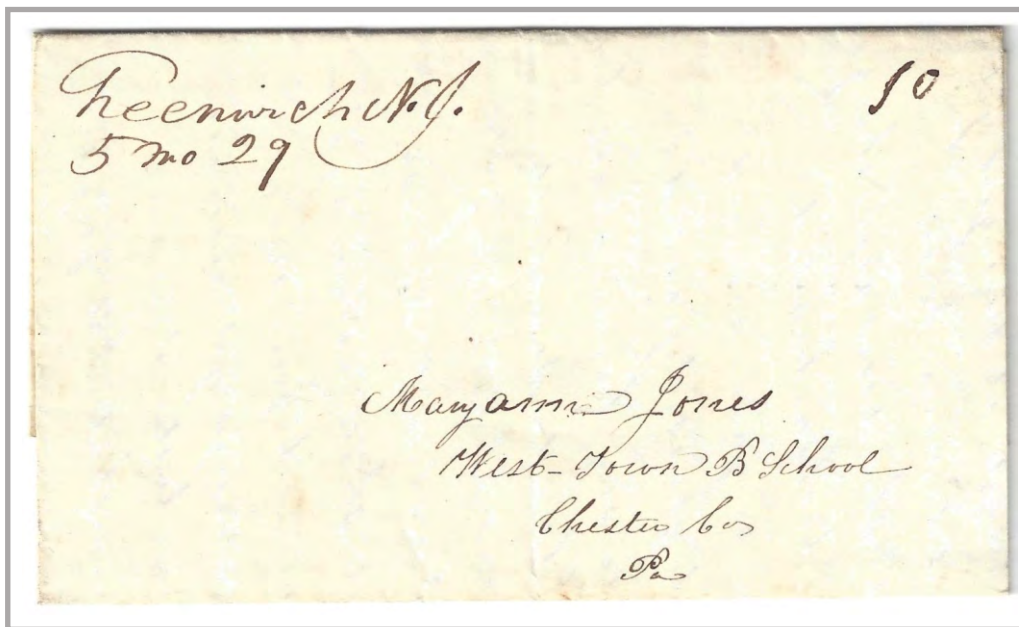 Greenwich N.J.
5 mo 29
10
Maryann Jones
West-Town B School
Chester Co
Pa